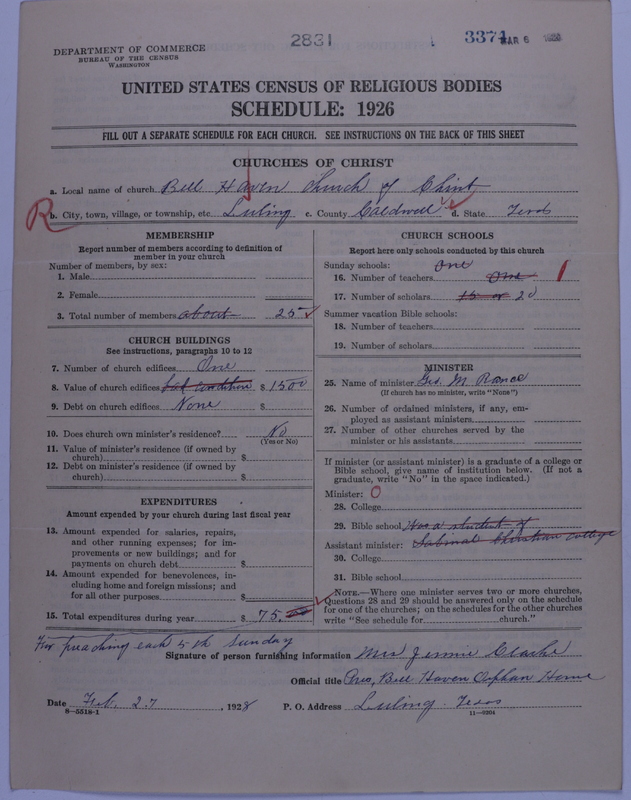 2831 3371 MAR 6 1928
DEPARTMENT OF COMMERCE
BUREAU OF THE CENSUS
WASHINGTON
UNITED STATES CENSUS OF RELIGIOUS BODIES
SCHEDULE: 1926
FILL OUT A SEPARATE SCHEDULE FOR EACH CHURCH. SEE INSTRUCTIONS ON THE BACK OF THIS SHEET
CHURCHES OF CHRIST
a. Local name of church Bell Haven Church of Christ
R
b. City, town, village, or township, etc. Luling c. County Caldwell d. State Texas
MEMBERSHIP
Report number of members according to definition of
member in your church
Number of members, by sex:
1. Male
2. Female
3. Total number of members about 25
CHURCH BUILDINGS
See instructions, paragraphs 10 to 12
7. Number of church edifices One
8. Value of church edifices bad condition $ 1500
9. Debt on church edifices None $
10. Does church own minister's residence? No
(Yes or No)
11. Value of minister's residence (if owned by
church) $
12. Debt on minister's residence (if owned by
church) $
EXPENDITURES
Amount expended by your church during last fiscal year
13. Amount expended for salaries, repairs,
and other running expenses; for im-
provements or new buildings; and for
payments on church debt $
14. Amount expended for benevolences, in-
cluding home and foreign missions; and
for all other purposes $
15. Total expenditures during year $ 75.00
CHURCH SCHOOLS
Report here only schools conducted by this church
Sunday schools: One
16. Number of teachers One 1
17. Number of scholars 15 or 20
Summer vacation Bible schools:
18. Number of teachers
19. Number of scholars
MINISTER
25. Name of minister Geo. M. Rance
(If church has no minister, write "None")
26. Number of ordained ministers, if any, em-
ployed as assistant ministers
27. Number of other churches served by the
minister or his assistants
If minister (or assistant minister) is a graduate of a college or
Bible school, give name of institution below. (If not a
graduate, write "No" in the space indicated.)
Minister: 0
28. College
29. Bible school Was a student of
Assistant minister: Sabinal Christian College
30. College
31. Bible school
NOTE.—Where one minister serves two or more churches,
Questions 28 and 29 should be answered only on the schedule
for one of the churches; on the schedules for the other churches
write "See schedule for church."
For preaching each 5th Sunday
Signature of person furnishing information Mrs Jennie Clarke
Official title Pres, Bell Haven Orphan Home
Date Feb. 27, 1928 P. O. Address Luling Texas
8—5518-1 11—9204